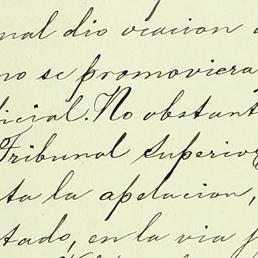 nal dio ocacion
no se promoviera
dicial. No obstant
Tribunal Superior
ta la apelacion,
tado, en la via